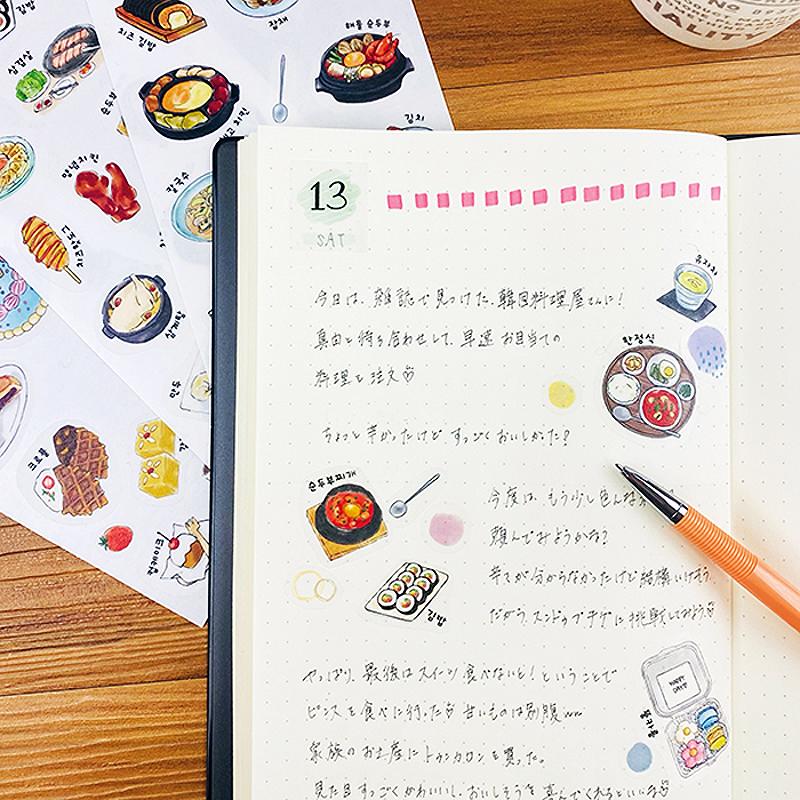 치즈 김밥
잡채
해물 순두부
삼겹살
김치
양념치킨
칼국수
삼계탕
크로플
컵케이크
NO
IALITY
13
SAT
今日は、雑誌で見つけた韓国料理屋さんに!
真由と待ち合わせして、早速お目当ての
料理を注文♡
ちょっと辛かったけどすっごくおいしかった!
유자차
한정식
순두부찌개
김밥
今度は、もう少し色んな
頼んでみようかな?
辛さが分からなかったけど結構いけそう
だから、スンドゥブチゲに挑戦してみよう♡
やっぱり、最後はスイーツ食べないと!ということで
ピンスを食べに行った♡ 甘いものは別腹ww
家族のお土産にトゥンカロンを買った。
見た目すっごくかわいいし、おいしそう 喜んでくれるといいな♡
HAPPY DAY!
뚱카롱